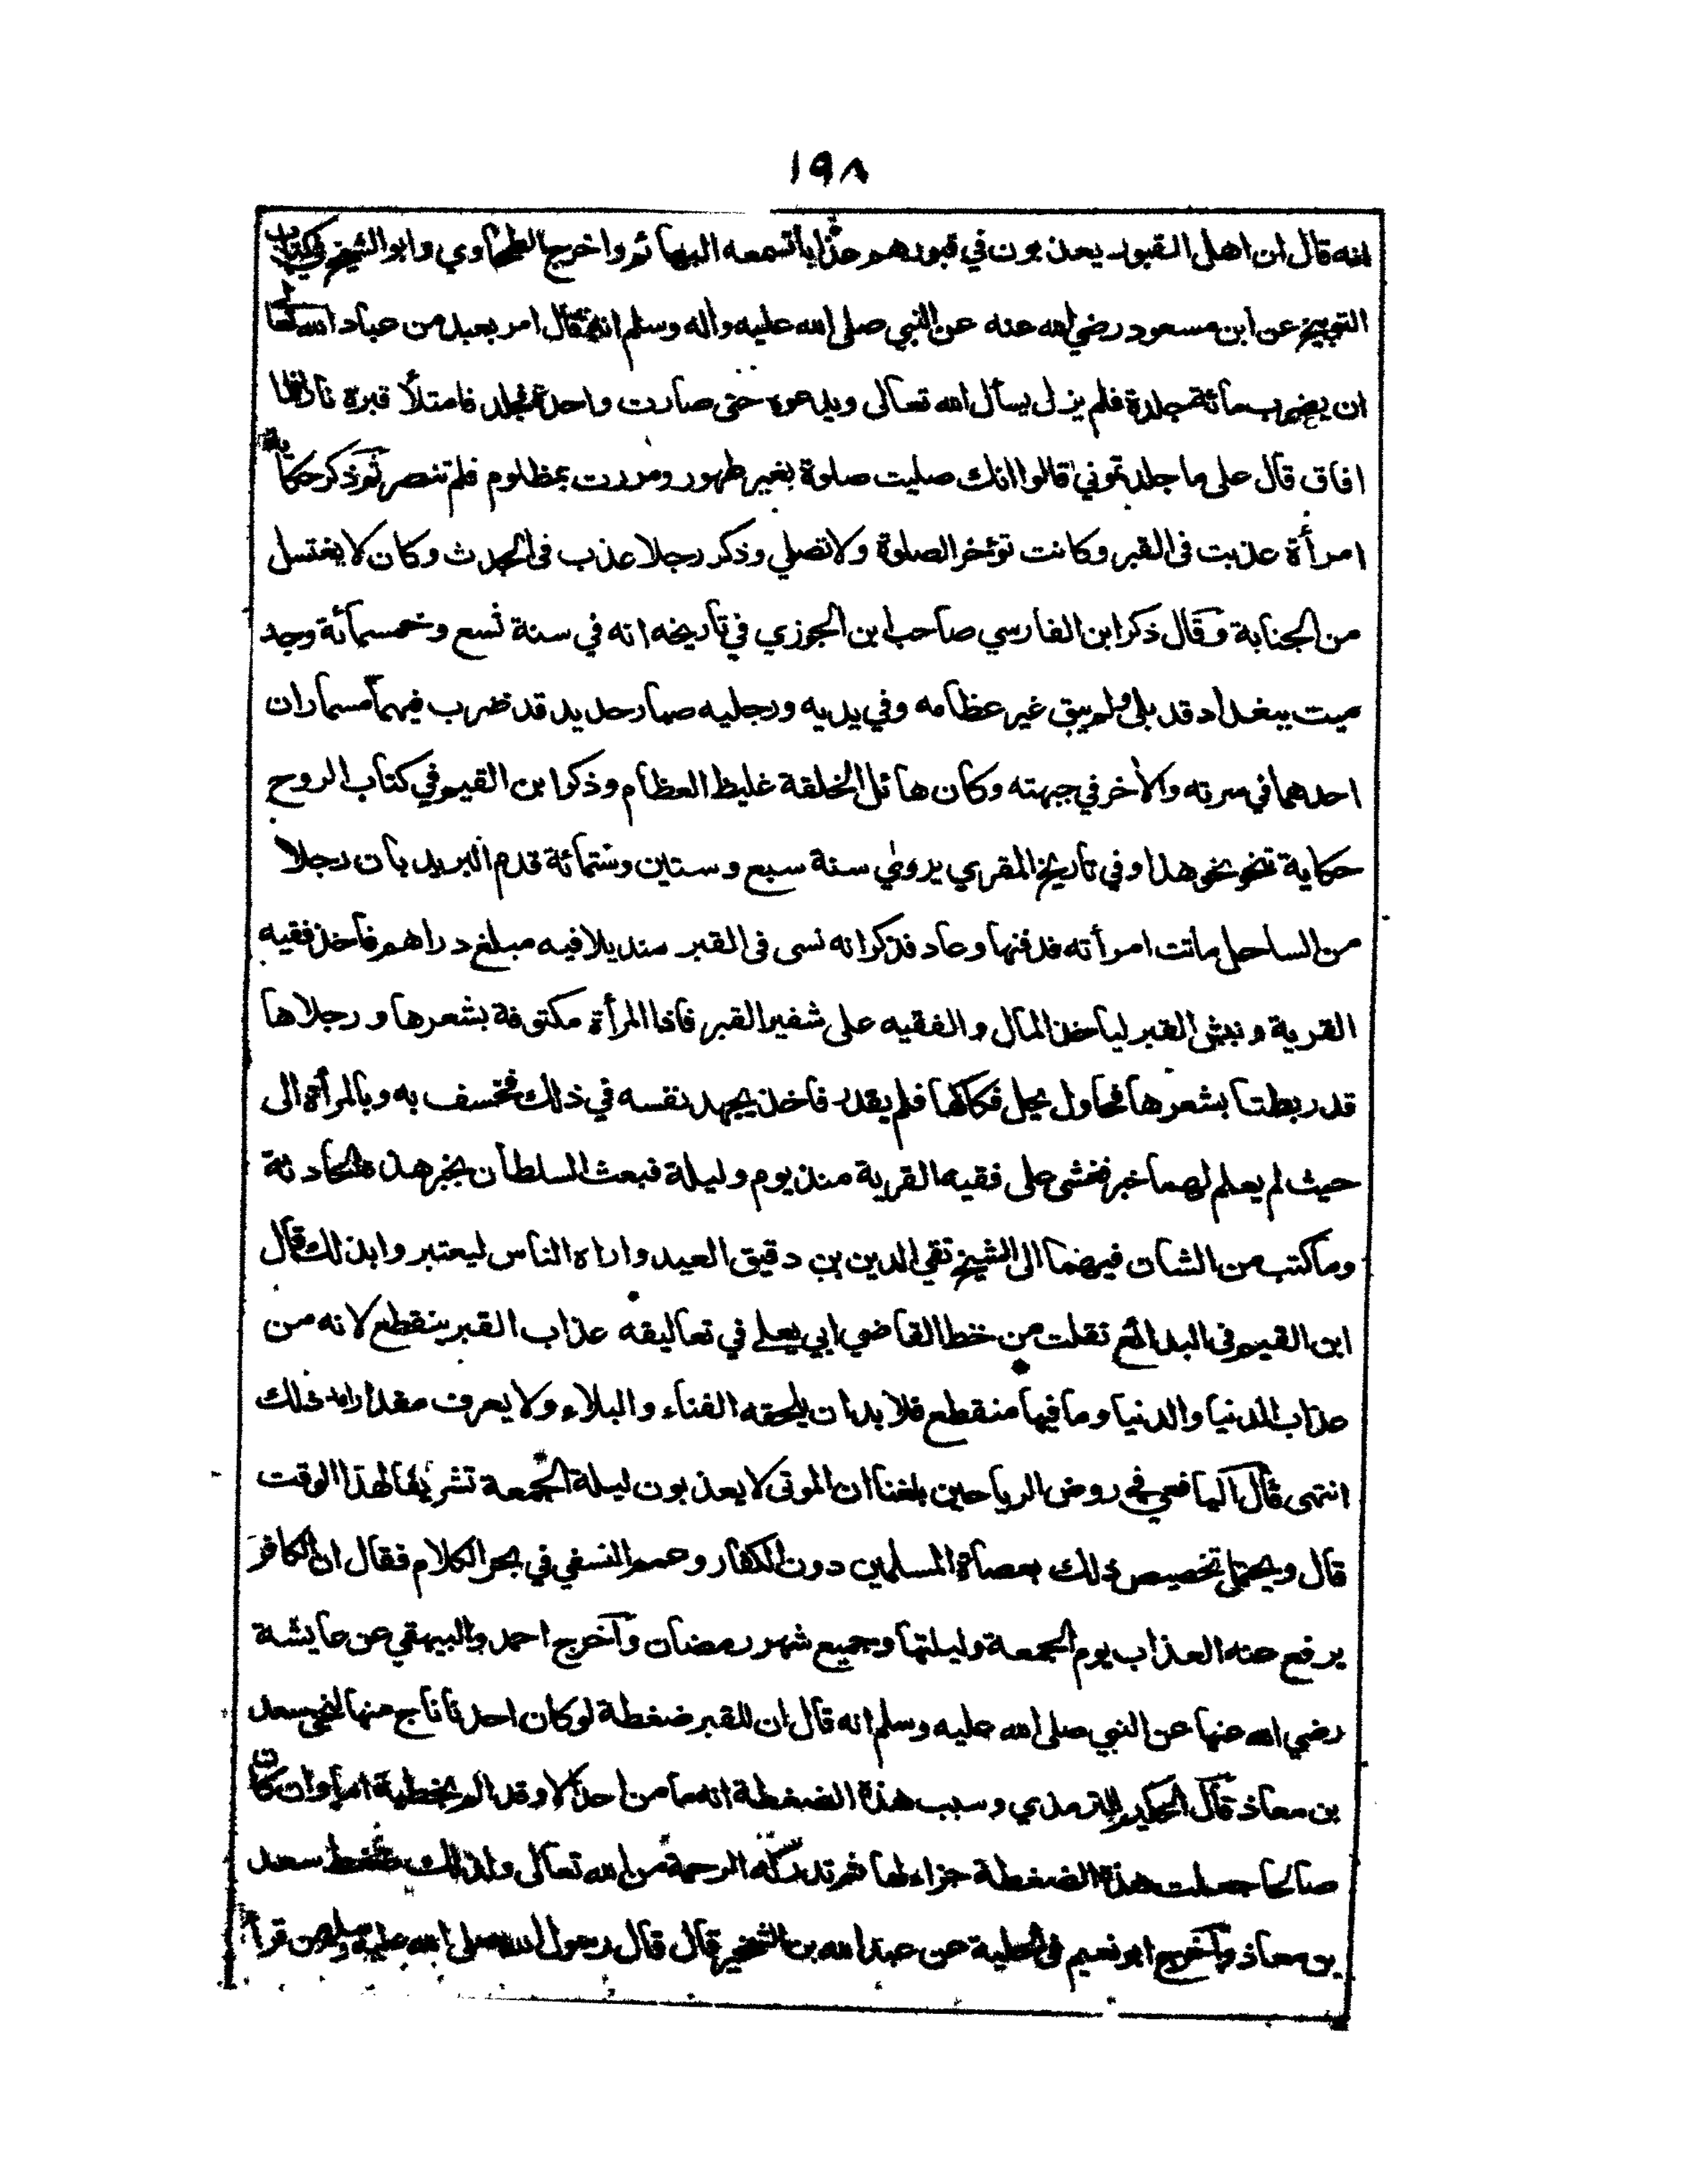 ١٩٨
انه قال ان اهل القبور يعذبون في قبورهم عذابا تسمعه البهائم واخرج الطحاوي وابو الشيخ في كتاب
التوبيخ عن ابن مسعود رضي الله عنه عن النبي صلى الله عليه واله وسلم انه قال امر بعبد من عباد الله تعالى
ان يضرب مائة جلدة فلم يزل يسأل الله تعالى ويدعوه حتى صارت واحدة فجلد فامتلأ قبره نارا فلما
افاق قال على ما جلدتموني قالوا انك صليت صلوة بغير طهور ومررت بمظلوم فلم تنصر ثم ذكر حكاية
امرأة عذبت فى القبر وكانت تؤخر الصلوة ولا تصلي وذكر رجلا عذب فى الحدث وكان لا يغتسل
من الجنابة وقال ذكر ابن الفارسي صاحب ابن الجوزي في تاريخه انه في سنة تسع وخمسمائة وجد
ميت ببغداد قد بلى ولم يبق غير عظامه وفي يديه ورجليه صبار حديد قد ضرب فيهما مسماران
احدهما في سرته والاخر في جبهته وكان هائل الخلقة غليظ العظام وذكر ابن القيم في كتاب الروح
حكاية نحو هذا وفي تاريخ المقري يروي سنة سبع وستين وستمائة قدم البريد بان رجلا
من الساحل ماتت امرأته فدفنها وعاد فذكر انه نسى فى القبر منديلا فيه مبلغ دراهم فاخذ فقيه
القرية ونبش القبر لياخذ المال والفقيه على شفير القبر فاذا المرأة مكتوفة بشعرها ورجلاها
قد ربطتا بشعرها فحاول حل فكاكها فلم يقدر فاخذ يجهد نفسه في ذلك فخسف به وبالمرأة الى
حيث لم يعلم لهما خبر فغشي على فقيه القرية منذ يوم وليلة فبعث السلطان بخبر هذه الحادثة
وما كتب من الشان فيهما الى الشيخ تقي الدين بن دقيق العيد واراه الناس ليعتبروا بذلك قال
ابن القيم فى البدائع نقلت من خط القاضي ابي يعلى في تعاليقه عذاب القبر ينقطع لانه من
عذاب الدنيا والدنيا وما فيها منقطع فلا بد ان يلحقه الفناء والبلاء ولا يعرف مقدار ذلك
انتهى قال اليافعي في روض الرياحين بلغنا ان الموتى لا يعذبون ليلة الجمعة تشريفا لهذا الوقت
قال ويحتمل تخصيص ذلك بعصاة المسلمين دون الكفار وعمم النسفي في بحر الكلام فقال ان الكافر
يرفع عنه العذاب يوم الجمعة وليلتها وجميع شهر رمضان واخرج احمد والبيهقي عن عايشة
رضي الله عنها عن النبي صلى الله عليه وسلم انه قال ان للقبر ضغطة لو كان احد ناناج منها لنجى سعد
بن معاذ قال الحكيم الترمذي وسبب هذه الضغطة انه ما من احد الا وقد الم بخطية اما وان كان
صالحا جعلت هذه الضغطة جزاء لها ثم تدركه الرحمة من الله تعالى ولذلك ضغط سعد
بن معاذ واخرج ابو نعيم فى الحلية عن عبد الله بن الشخير قال قال رسول الله صلى الله عليه وسلم من قرأ